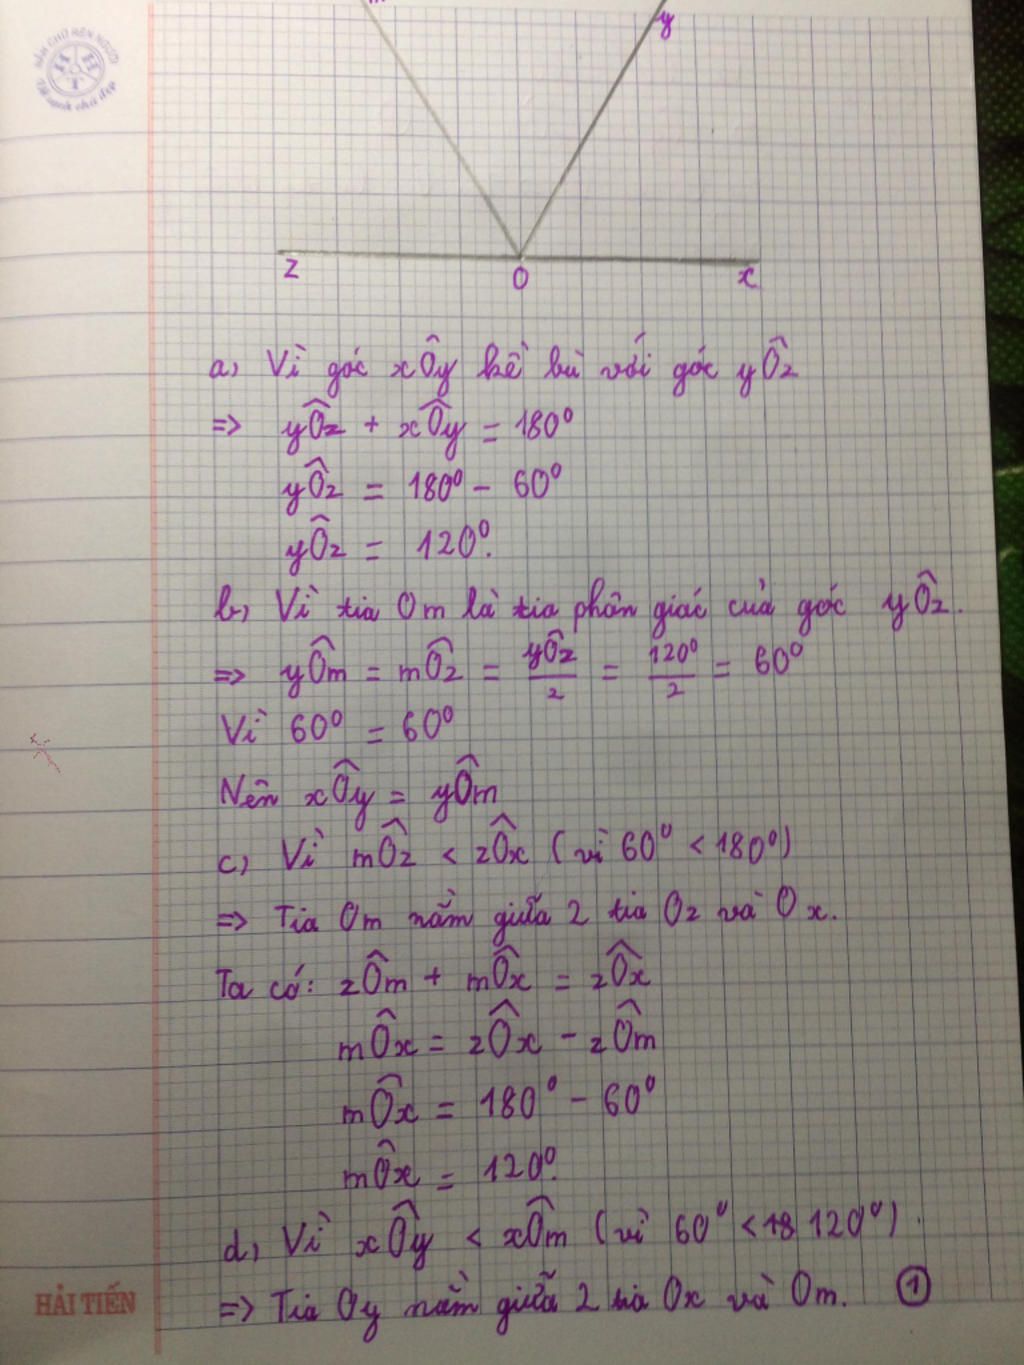 y
z
O
x
a, Vì góc xÔy kề bù với góc yÔz
=> yÔz + xÔy = 180°
yÔz = 180° - 60°
yÔz = 120°.
b, Vì tia Om là tia phân giác của góc yÔz.
=> yÔm = mÔz = yÔz/2 = 120°/2 = 60°
Vì 60° = 60°
Nên xÔy = yÔm
c, Vì mÔz < zÔx (vì 60° < 180°)
=> Tia Om nằm giữa 2 tia Oz và Ox.
Ta có: zÔm + mÔx = zÔx
mÔx = zÔx - zÔm
mÔx = 180° - 60°
mÔx = 120°.
d, Vì xÔy < xÔm (vì 60° < 18 120°).
=> Tia Oy nằm giữa 2 tia Ox và Om. ①
HẢI TIẾN